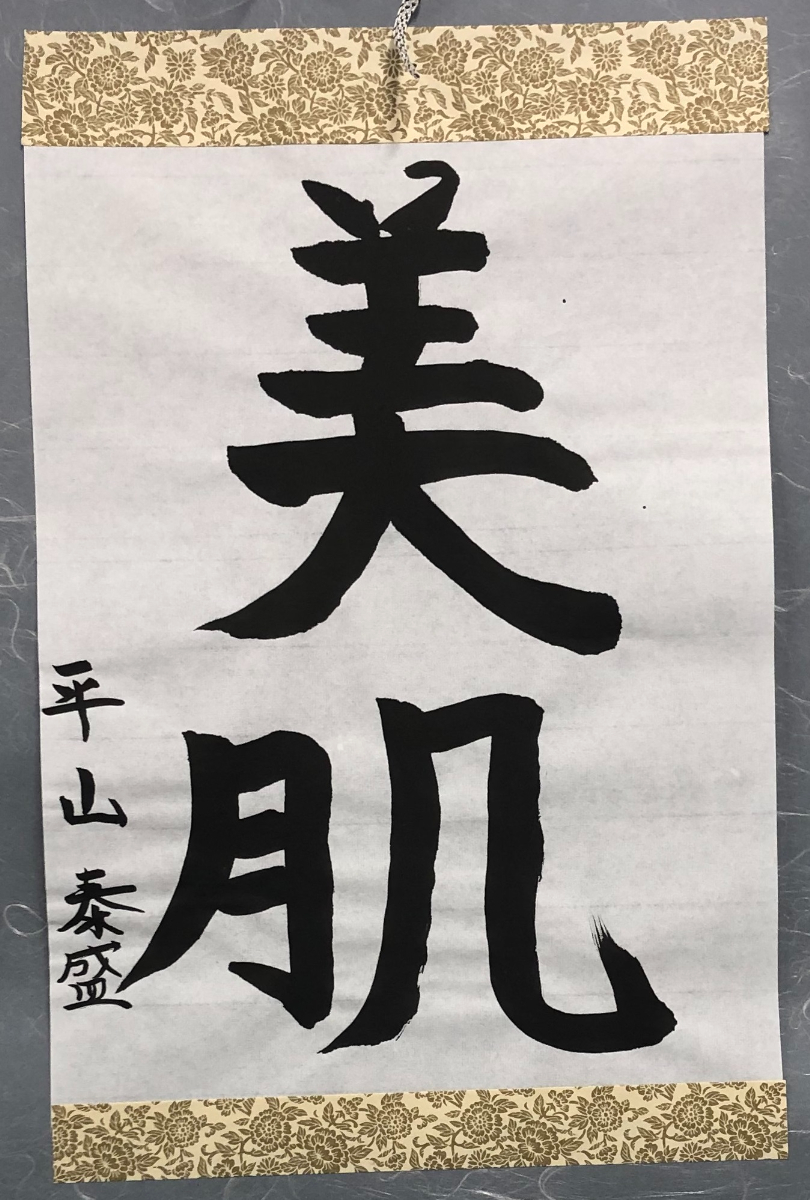 美肌
平山泰盛